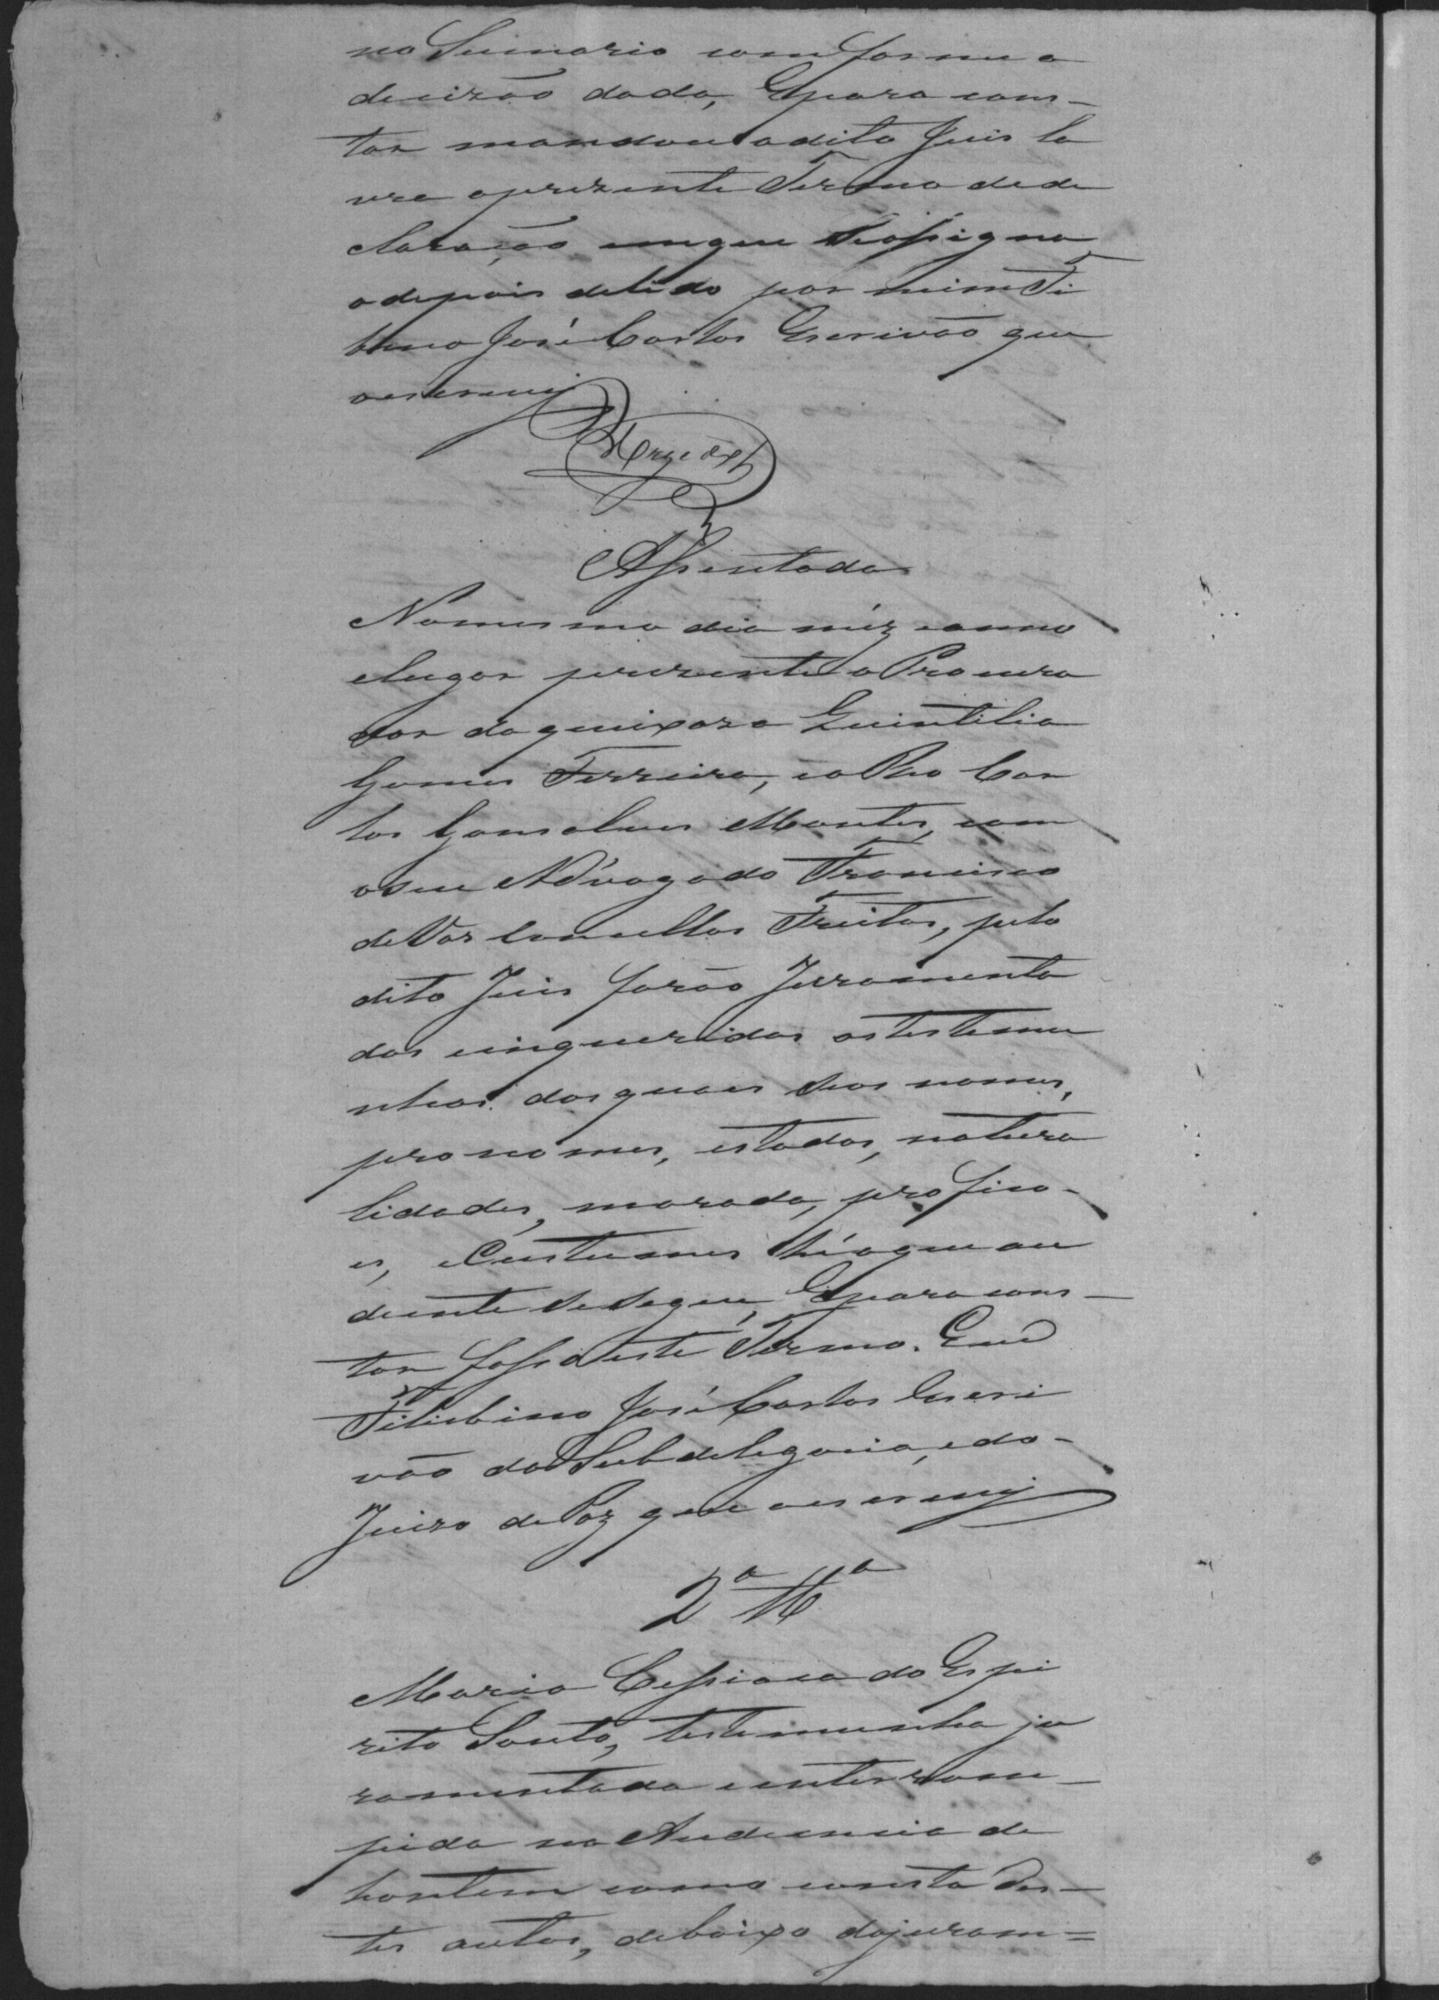 no Summario comforme a
decizão dada, Epara cons-
tar mandou o dito Juis la
vra oprezente Termo dede
claração emque seassigna
adepois delido por mim Ti
bino José Castos Escrivão que
oescrevy
Assentada
Nomesmo dia mêz eanno
elugar prezente o Procura
dor da queixoza Quintilia
Gomes Ferreira, eo Reo Car
los Gonsalves Montes, com
oseu Advogado Francisco
de Vasconcellos Freitas, pelo
dito Juis forão Jurramenta
das einqueridas astestemu
nhas dasquaes seos nomes,
pronomes, estados, natura
lidades, morada, profico-
es, eCustumes hé oque au
diante Sesegue, Epara cons-
tar fasso este Termo. Eu
Filisbino José Castos Escri
vão da Subdelegacia, edo-
Juizo de Paz que oescrevy
2ª Ttª
Maria Cessiaca do Espi
rito Santo, testemunha ju
ramentada einterrom-
pida na Audiencia de
hontem como consta des-
tes autos, debaixo dojuram=